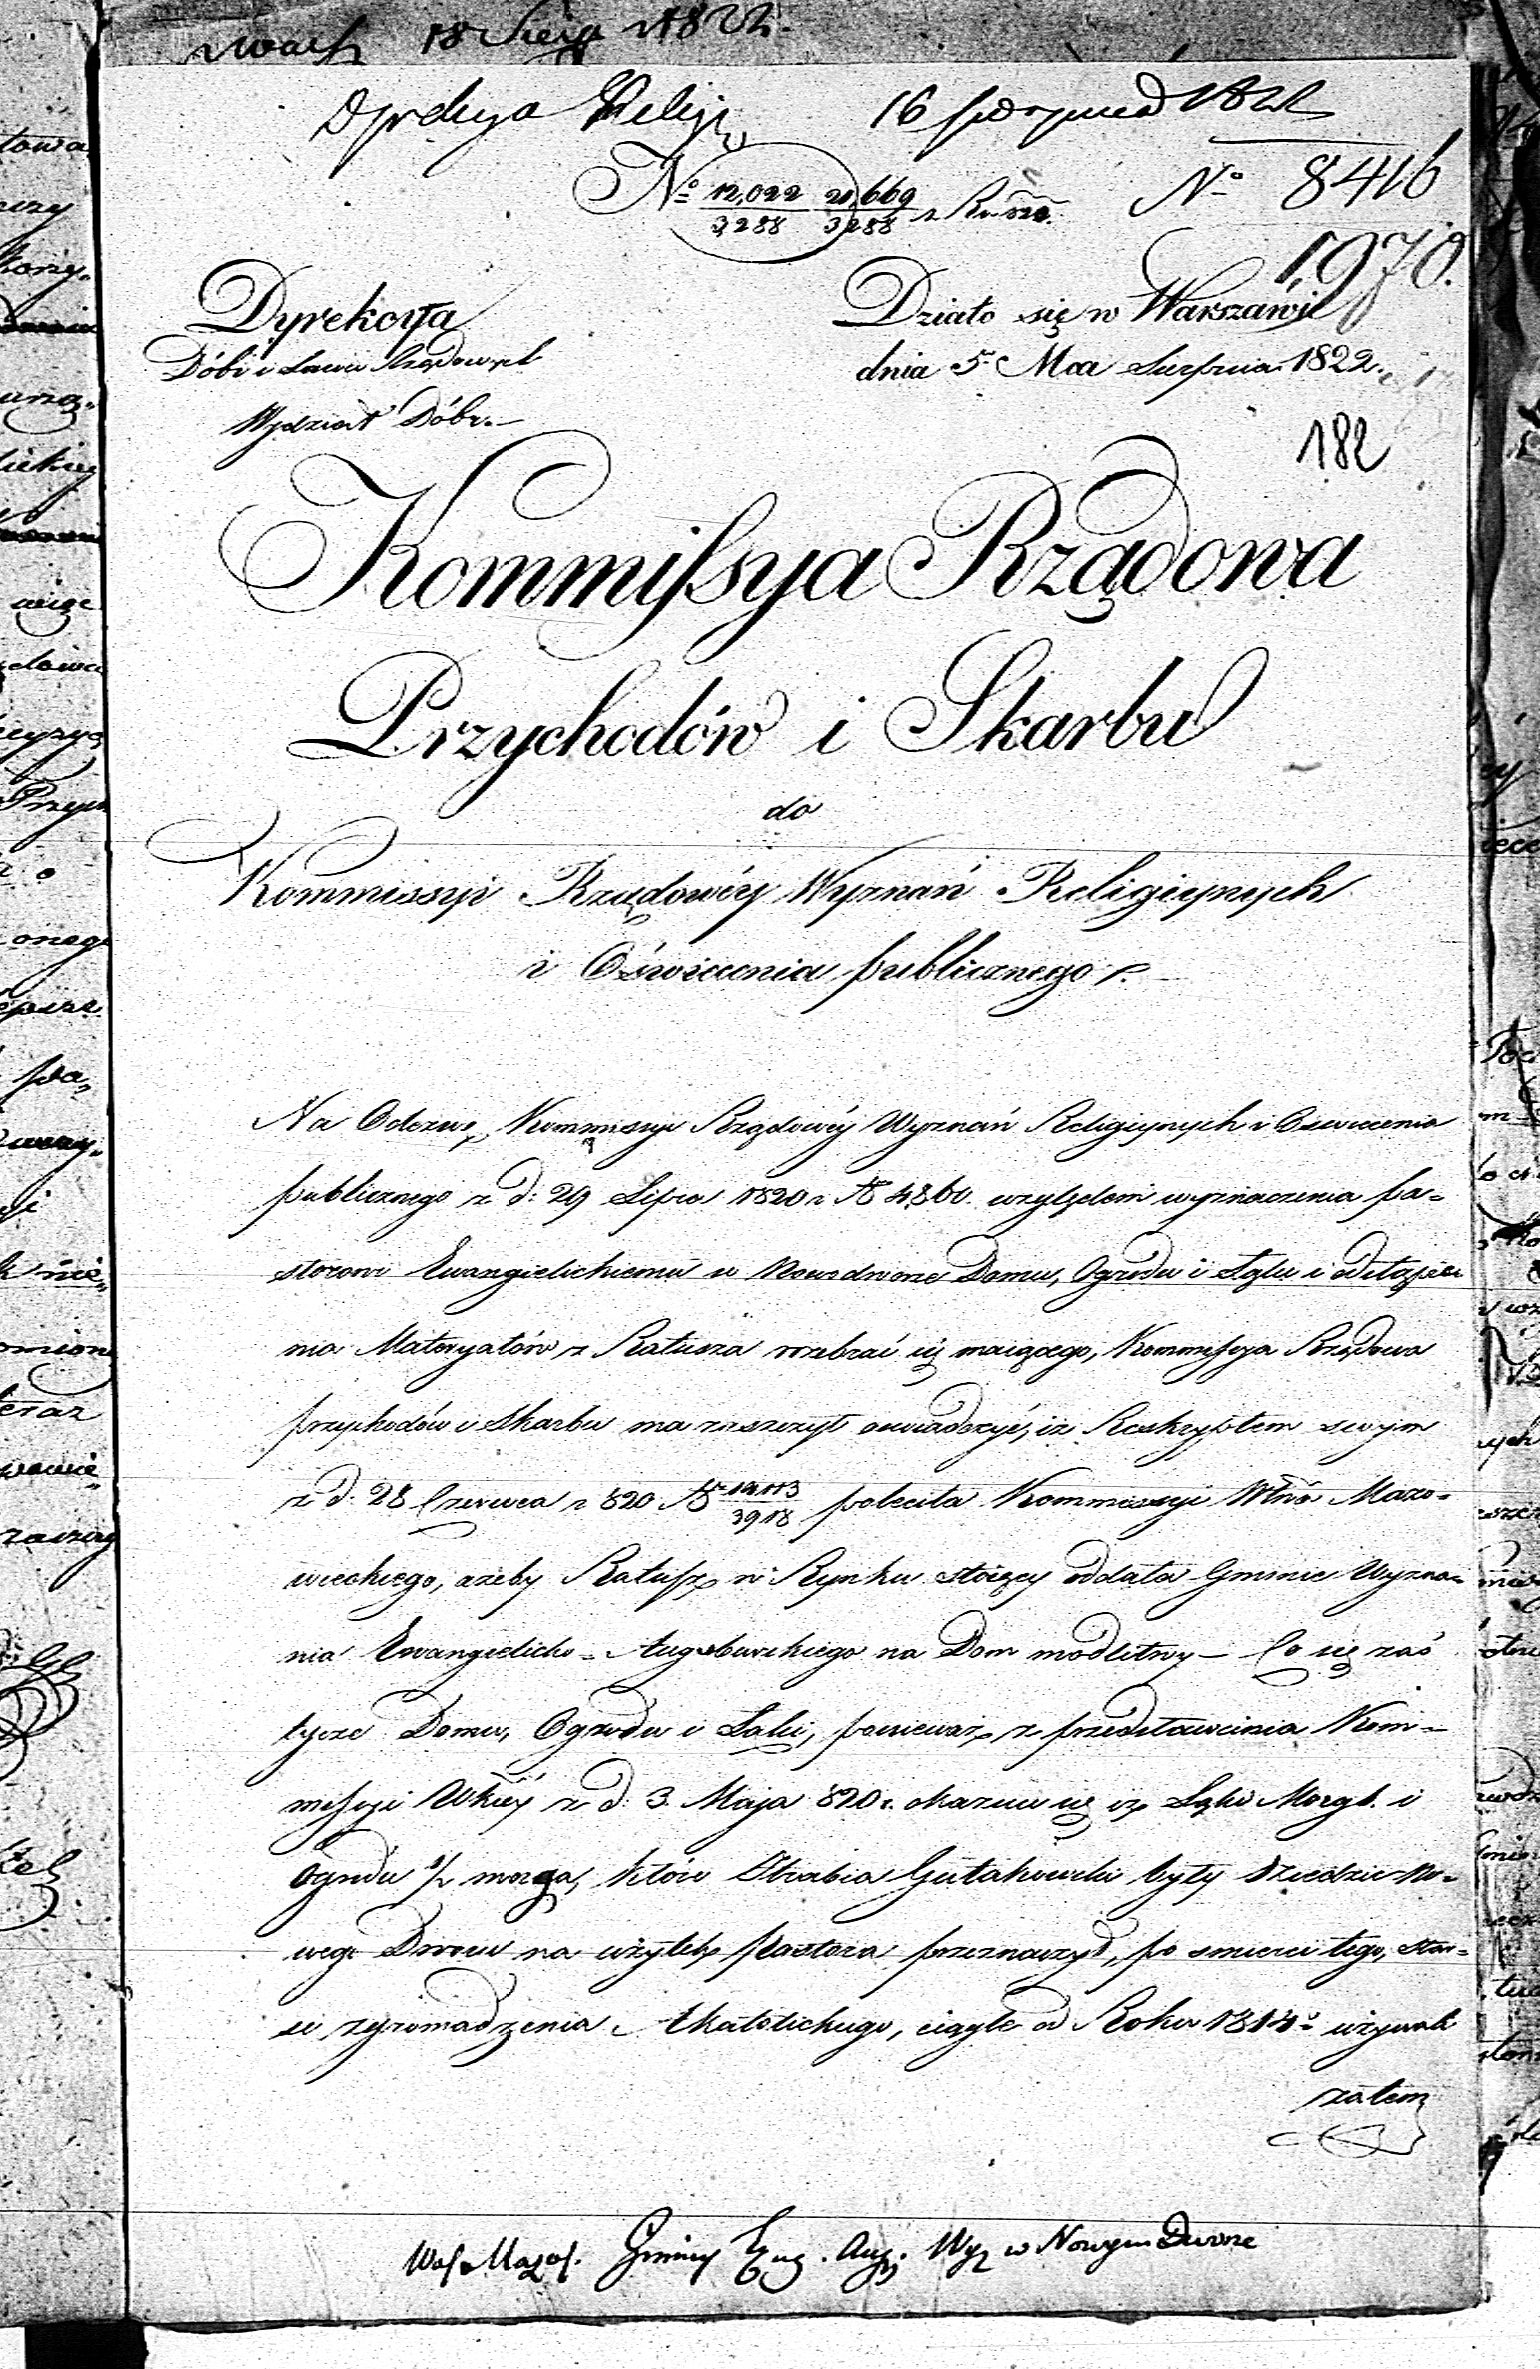 18 1822.
16 1822
Nº 12,022 20,669 Nº 8416
3288 3288
1,970.
Dyrekcya Działo się w Warszawie
Dóbr i Lasów Rządowych dnia 5 Mca Sierpnia 1822.
Wydział Dóbr.
182
Kommissya Rządowa
Przychodów i Skarbu
do
Kommissyi Rządowéy Wyznań Religiynych
i Oświecenia publicznego
Na Odezwę Kommissyi Rządowéy Wyznań Religiynych i Oswiecenia
publicznego z d: 29 Lipca 1820 r. Nº 4860. względem wyznaczenia pa=
storowi Ewangielickiemu w Nowdworze Domu, Ogrodu i Łąki i odstąpie
nia Materyałów z Ratusza rozebrać się maiącego, Kommissya Rządowa
przychodów i Skarbu ma zaszczyt oswiadczyć, iż Reskryptem swym
z d. 28 Czerwca r 820 Nº 14113/3918 poleciła Kommissyi Wtwa Mazo=
wieckiego, ażeby Ratusz w Rynku stoiący oddała Gminie Wyzna=
nia Ewangielicko = Augsburskiego na Dom modlitwy – Co się zaś
tycze Domu, Ogrodu i Łąki, ponieważ z przedstawienia Kom=
missyi Wkiey z d. 3. Maja 820 r. okazuie się iż Łąki Morg. 1. i
Ogrodu 1/2 morga, które Hrabia Gutakowski były dziedzic No=
wego Dworu na użytek Pastora przeznaczył, po smierci tego, star=
si zgromadzenia Akatolickiego, ciągle od Roku 1814º używali
zatem
Gminy Ewg. Aug. Wyz w Nowym Dworze